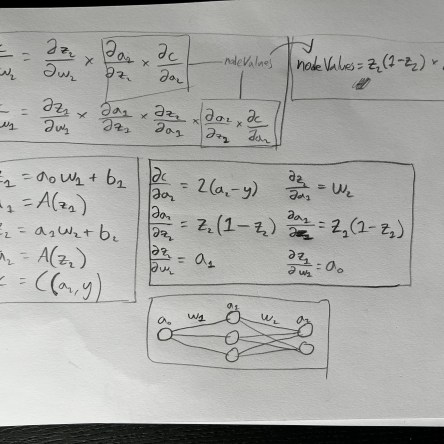 ∂c/∂w₂ = ∂z₂/∂w₂ × ∂a₂/∂z₂ × ∂c/∂a₂
nodeValues
nodeValues = z₂(1-z₂) ×
∂c/∂w₁ = ∂z₁/∂w₁ × ∂a₁/∂z₁ × ∂z₂/∂a₁ × ∂a₂/∂z₂ × ∂c/∂a₂
z₁ = a₀w₁ + b₁
a₁ = A(z₁)
z₂ = a₁w₂ + b₂
a₂ = A(z₂)
c = C(a₂, y)
∂c/∂a₂ = 2(a₂-y) ∂z₂/∂a₁ = w₂
∂a₂/∂z₂ = z₂(1-z₂) ∂a₁/∂z₁ = z₁(1-z₁)
∂z₂/∂w₂ = a₁ ∂z₁/∂w₁ = a₀
a₀ w₁ a₁ w₂ a₂